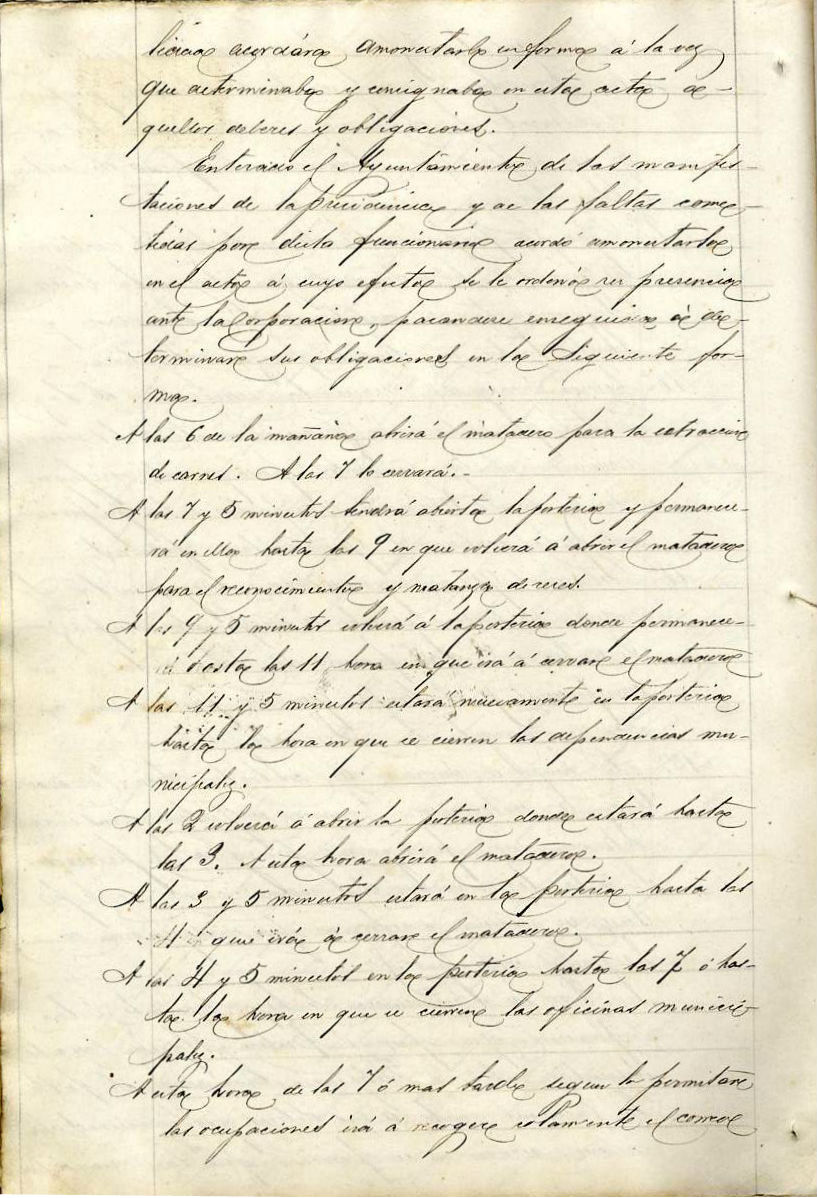 acordára amonestarle en forma á la vez
que determinaba y consignaba en esta acta a-
quellos deberes y obligaciones.
Enterado el Ayuntamiento de las manifes-
taciones de la presidencia y de las faltas come-
tidas por dicho funcionario acordó amonestarlo
en el acto á cuyo efecto se le ordenó su presencia
ante la Corporacion, pasandose enseguida á de-
terminar sus obligaciones en la siguiente for-
ma.
A las 6 de la mañana abrirá el matadero para la estraccion
de carnes. A las 7 lo cerrará.-
A las 7 y 5 minutos tendrá abierta la porteria y permanece-
rá en ella hasta las 9 en que volverá á abrir el matadero
para el reconocimiento y matanza de reses.
A las 9 y 5 minutos volverá á la porteria donde permanece-
rá hasta las 11 hora en que irá á cerrar el matadero
A las 11 y 5 minutos estará nuevamente en la porteria
hasta la hora en que se cierren las dependencias mu-
nicipales.
A las 2 volverá á abrir la porteria donde estará hasta
las 3. A esta hora abrirá el matadero.
A las 3 y 5 minutos estará en la porteria hasta las
4 que irá á cerrar el matadero.
A las 4 y 5 minutos en la porteria hasta las 7 ó has-
ta la hora en que se cierren las oficinas munici-
pales.
A esta hora de las 7 ó mas tarde segun lo permitan
las ocupaciones irá á recoger solamente el correo